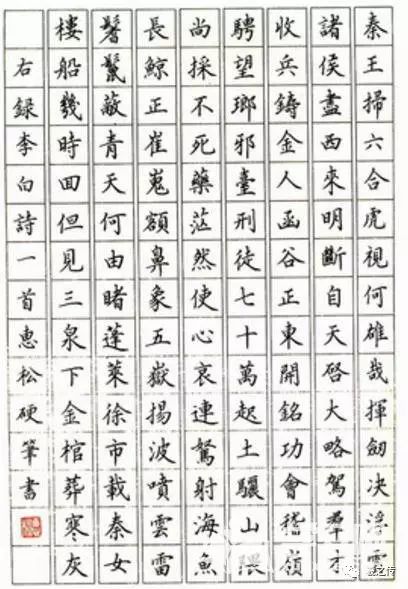 秦王掃六合虎視何雄哉揮劒决浮雲
諸侯盡西來明斷自天啓大略駕羣才
收兵鑄金人函谷正東開銘功會稽嶺
騁望瑯邪臺刑徒七十萬起土驪山隈
尚採不死藥茫然使心哀連駑射海魚
長鯨正崔嵬額鼻象五嶽揚波噴雲雷
鬐鬣蔽青天何由睹蓬萊徐市載秦女
樓船幾時回但見三泉下金棺葬寒灰
右録李白詩一首惠松硬筆書